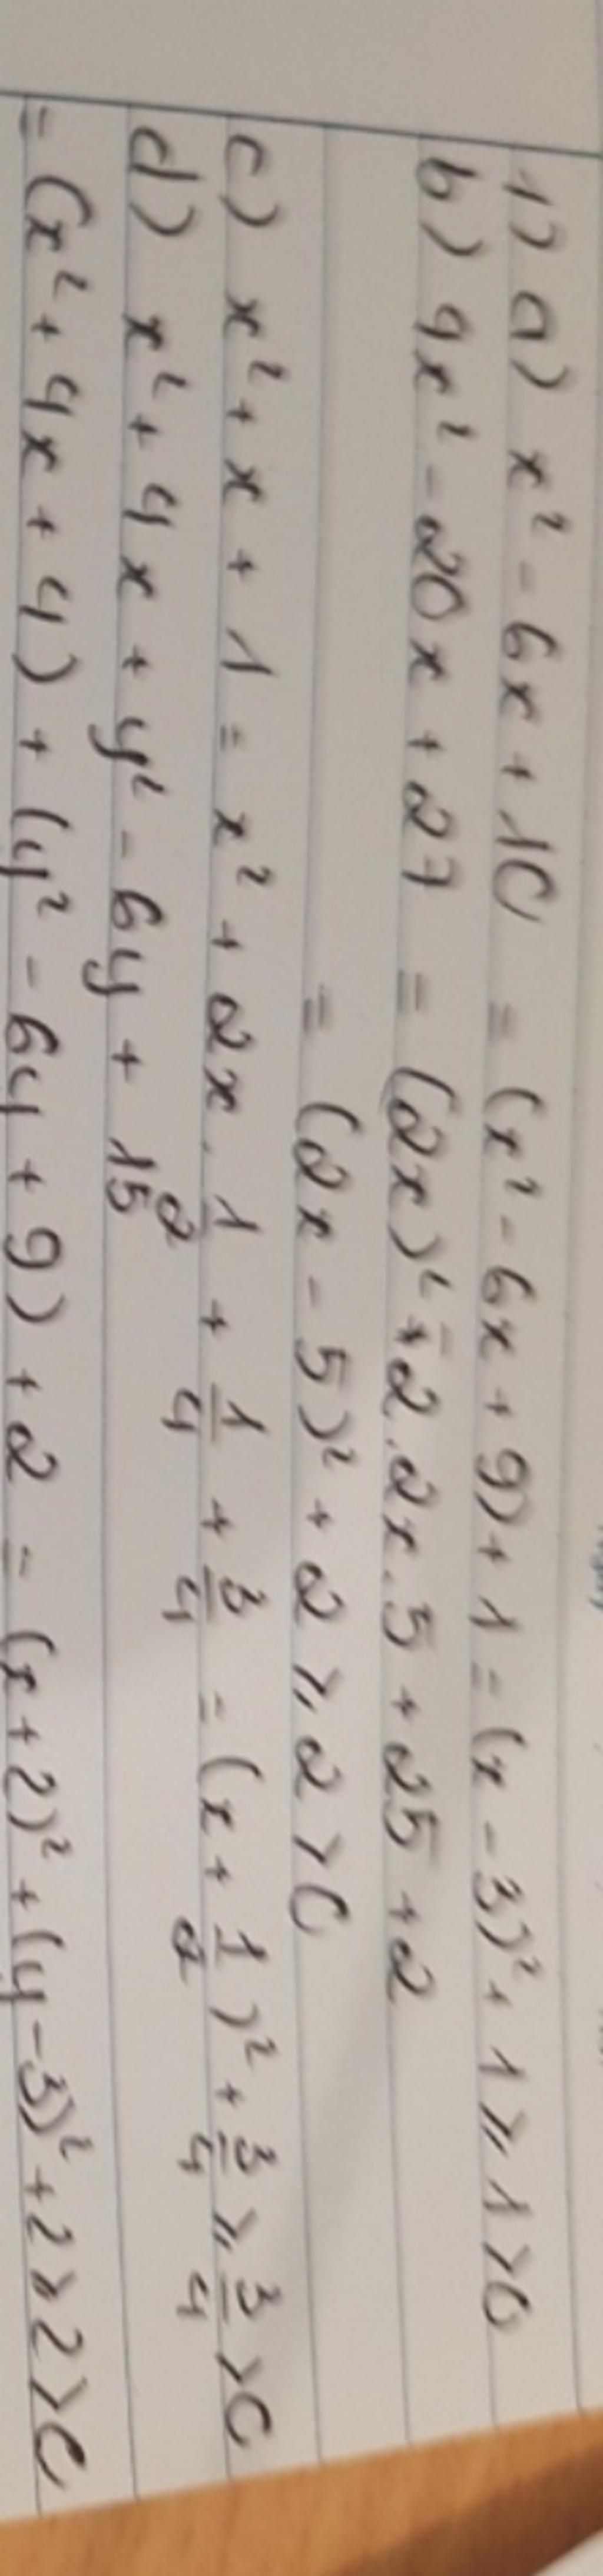 1) a) x² - 6x + 10 = (x² - 6x + 9) + 1 = (x - 3)² + 1 ≥ 1 > 0
b) 4x² - 20x + 27 = (2x)² - 2.2x.5 + 25 + 2
= (2x - 5)² + 2 ≥ 2 > 0
c) x² + x + 1 = x² + 2x.1/2 + 1/4 + 3/4 = (x + 1/2)² + 3/4 ≥ 3/4 > 0
d) x² + 4x + y² - 6y + 15
= (x² + 4x + 4) + (y² - 6y + 9) + 2 = (x + 2)² + (y - 3)² + 2 ≥ 2 > 0